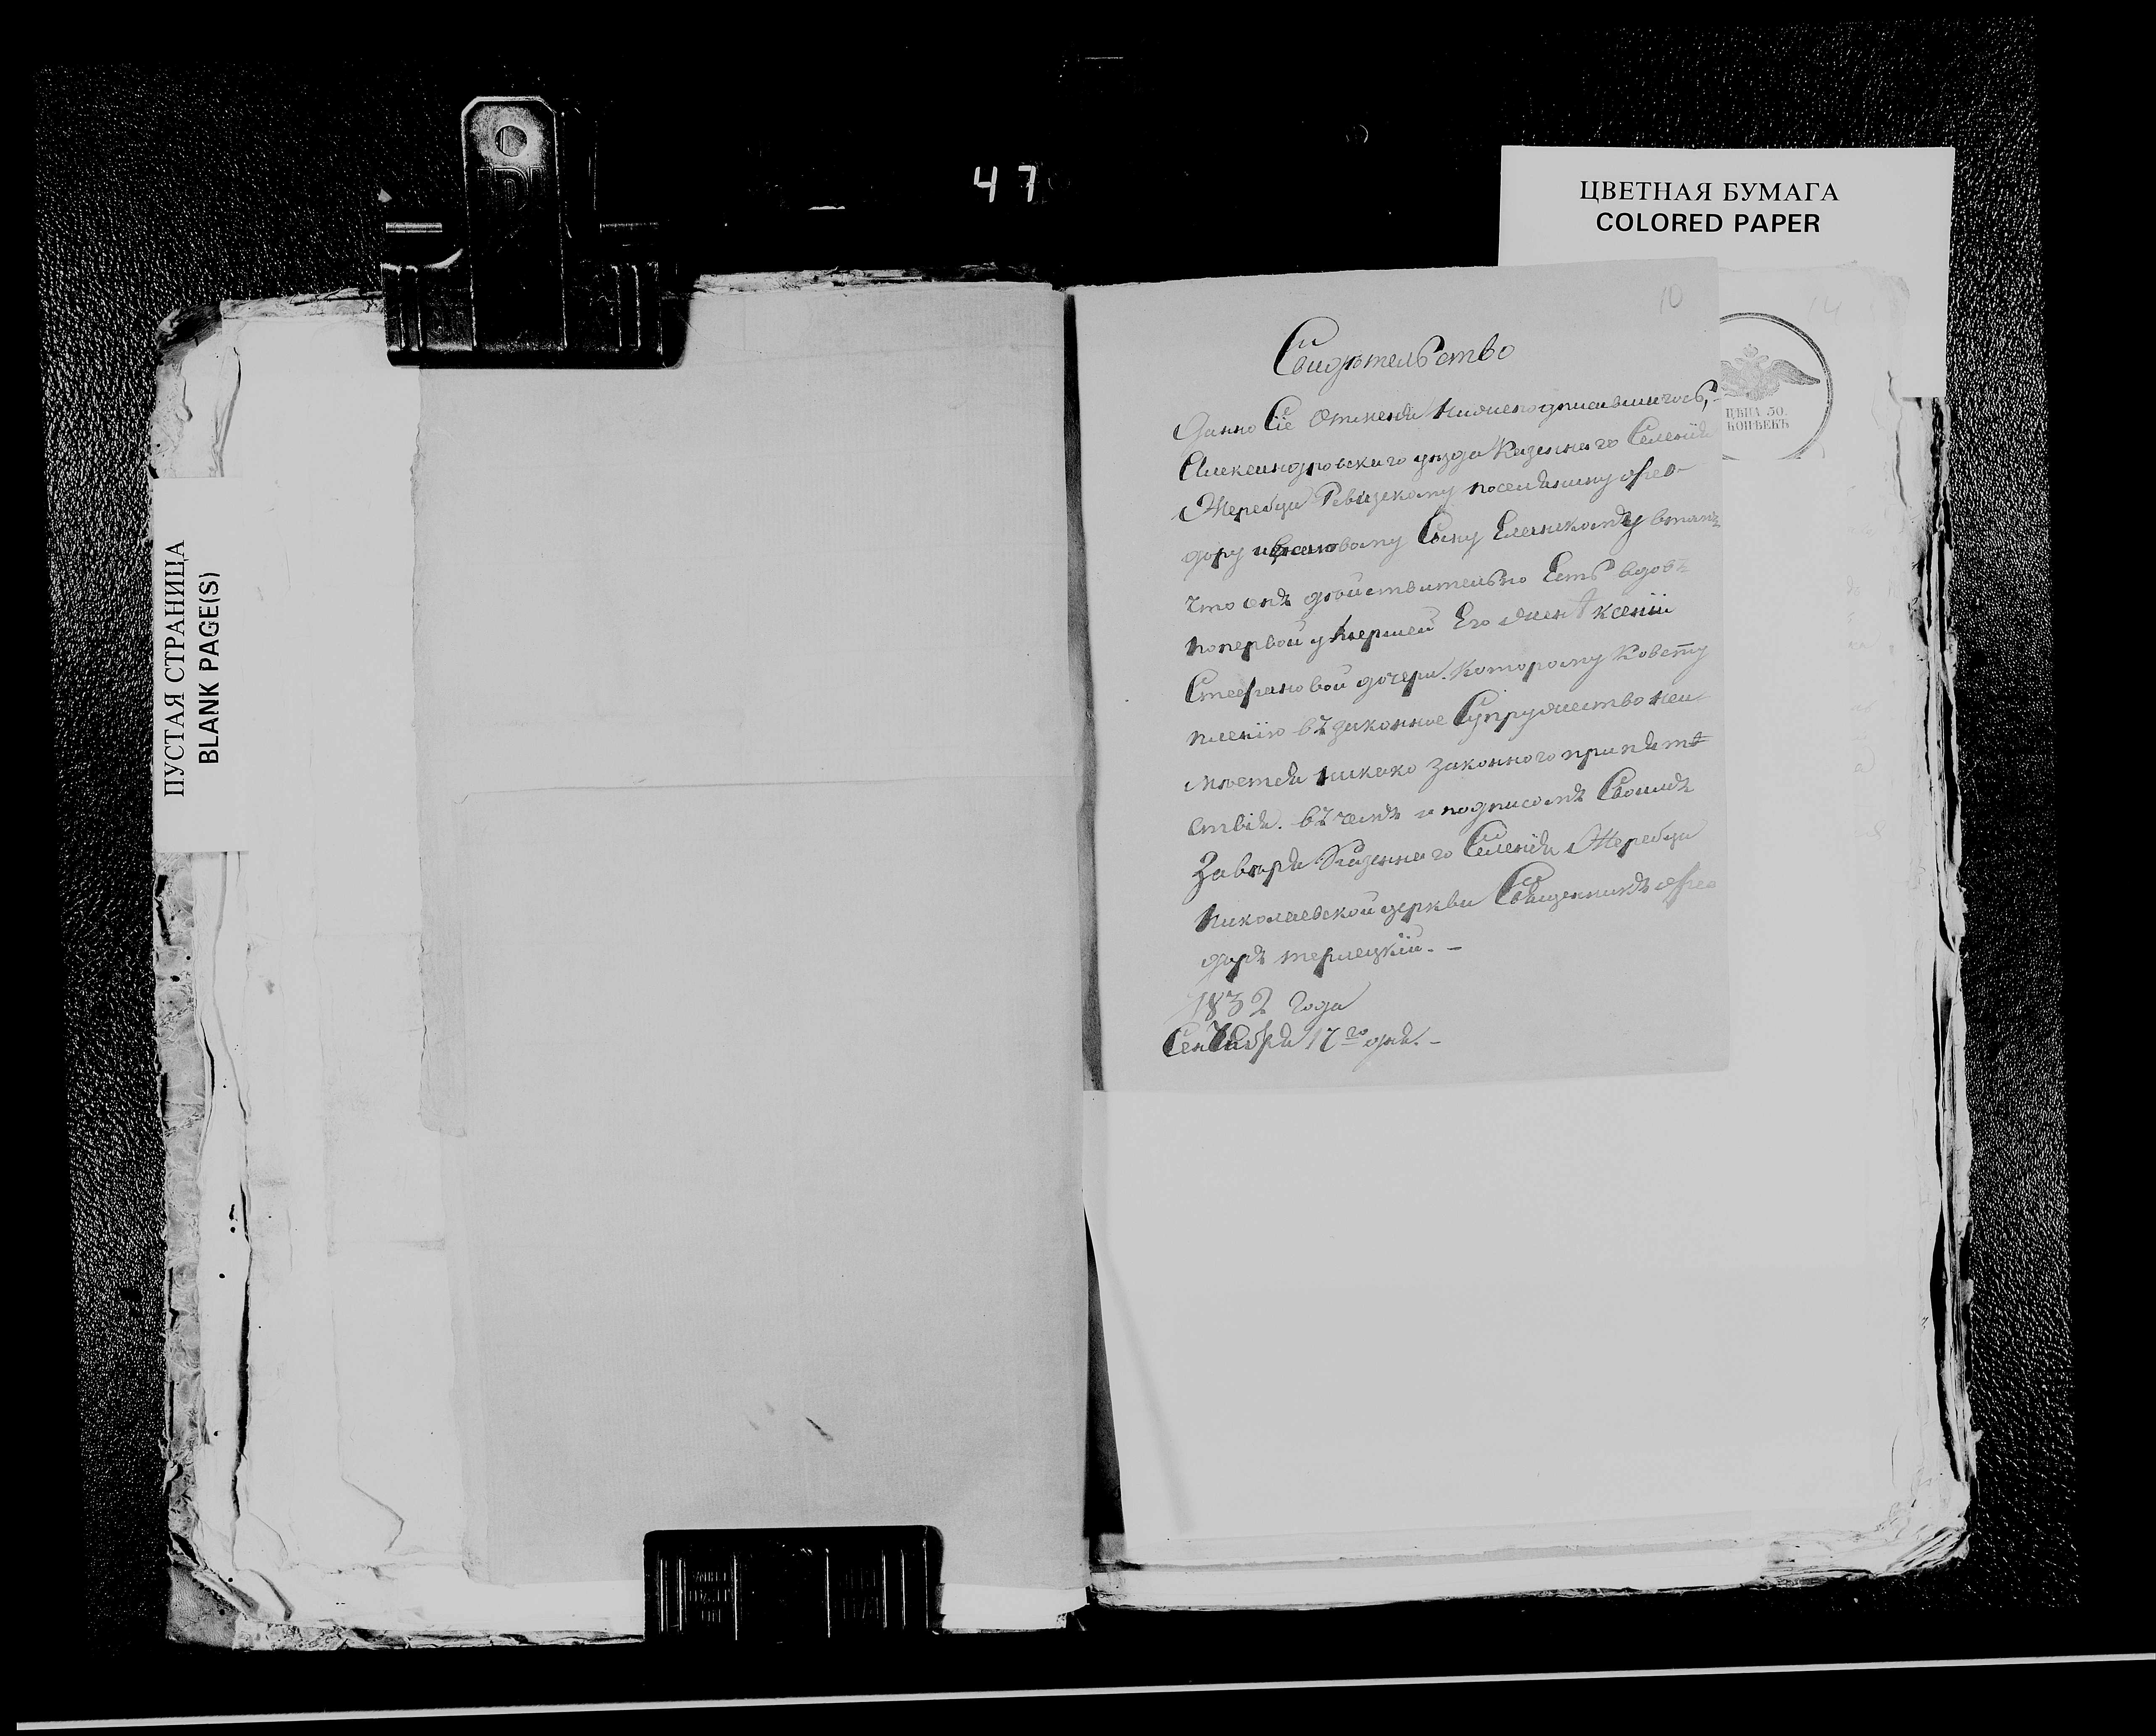 47
ЦВЕТНАЯ БУМАГА
COLORED PAPER
ПУСТАЯ СТРАНИЦА
BLANK PAGE(S)
10
14
ЦѢНА 50.
КОПѢЕКЪ
Свидѣтельство
Данно Сіе Отменя Нижеподписавшигось,
Александровского уѣзда Казенного Селенія
Жеребца Ревизскому поселянину Фео-
дору Сыну Еланскому втомъ
что онъ дѣйствительно Есть вдовъ
попервой умершей Его женѣ Ксеніи
Стефановой дочери. Которому Ковсту
пленію въ законное Супружество неи
мѣетъ никако Законного припят
ствія. въ чемъ и подписомъ Своимъ
Завѣря Казенного Селенія Жеребца
Николаевской церкви Священникъ Фео
доръ терлецкій. –
1832 Года
Сентября 17го дня. –